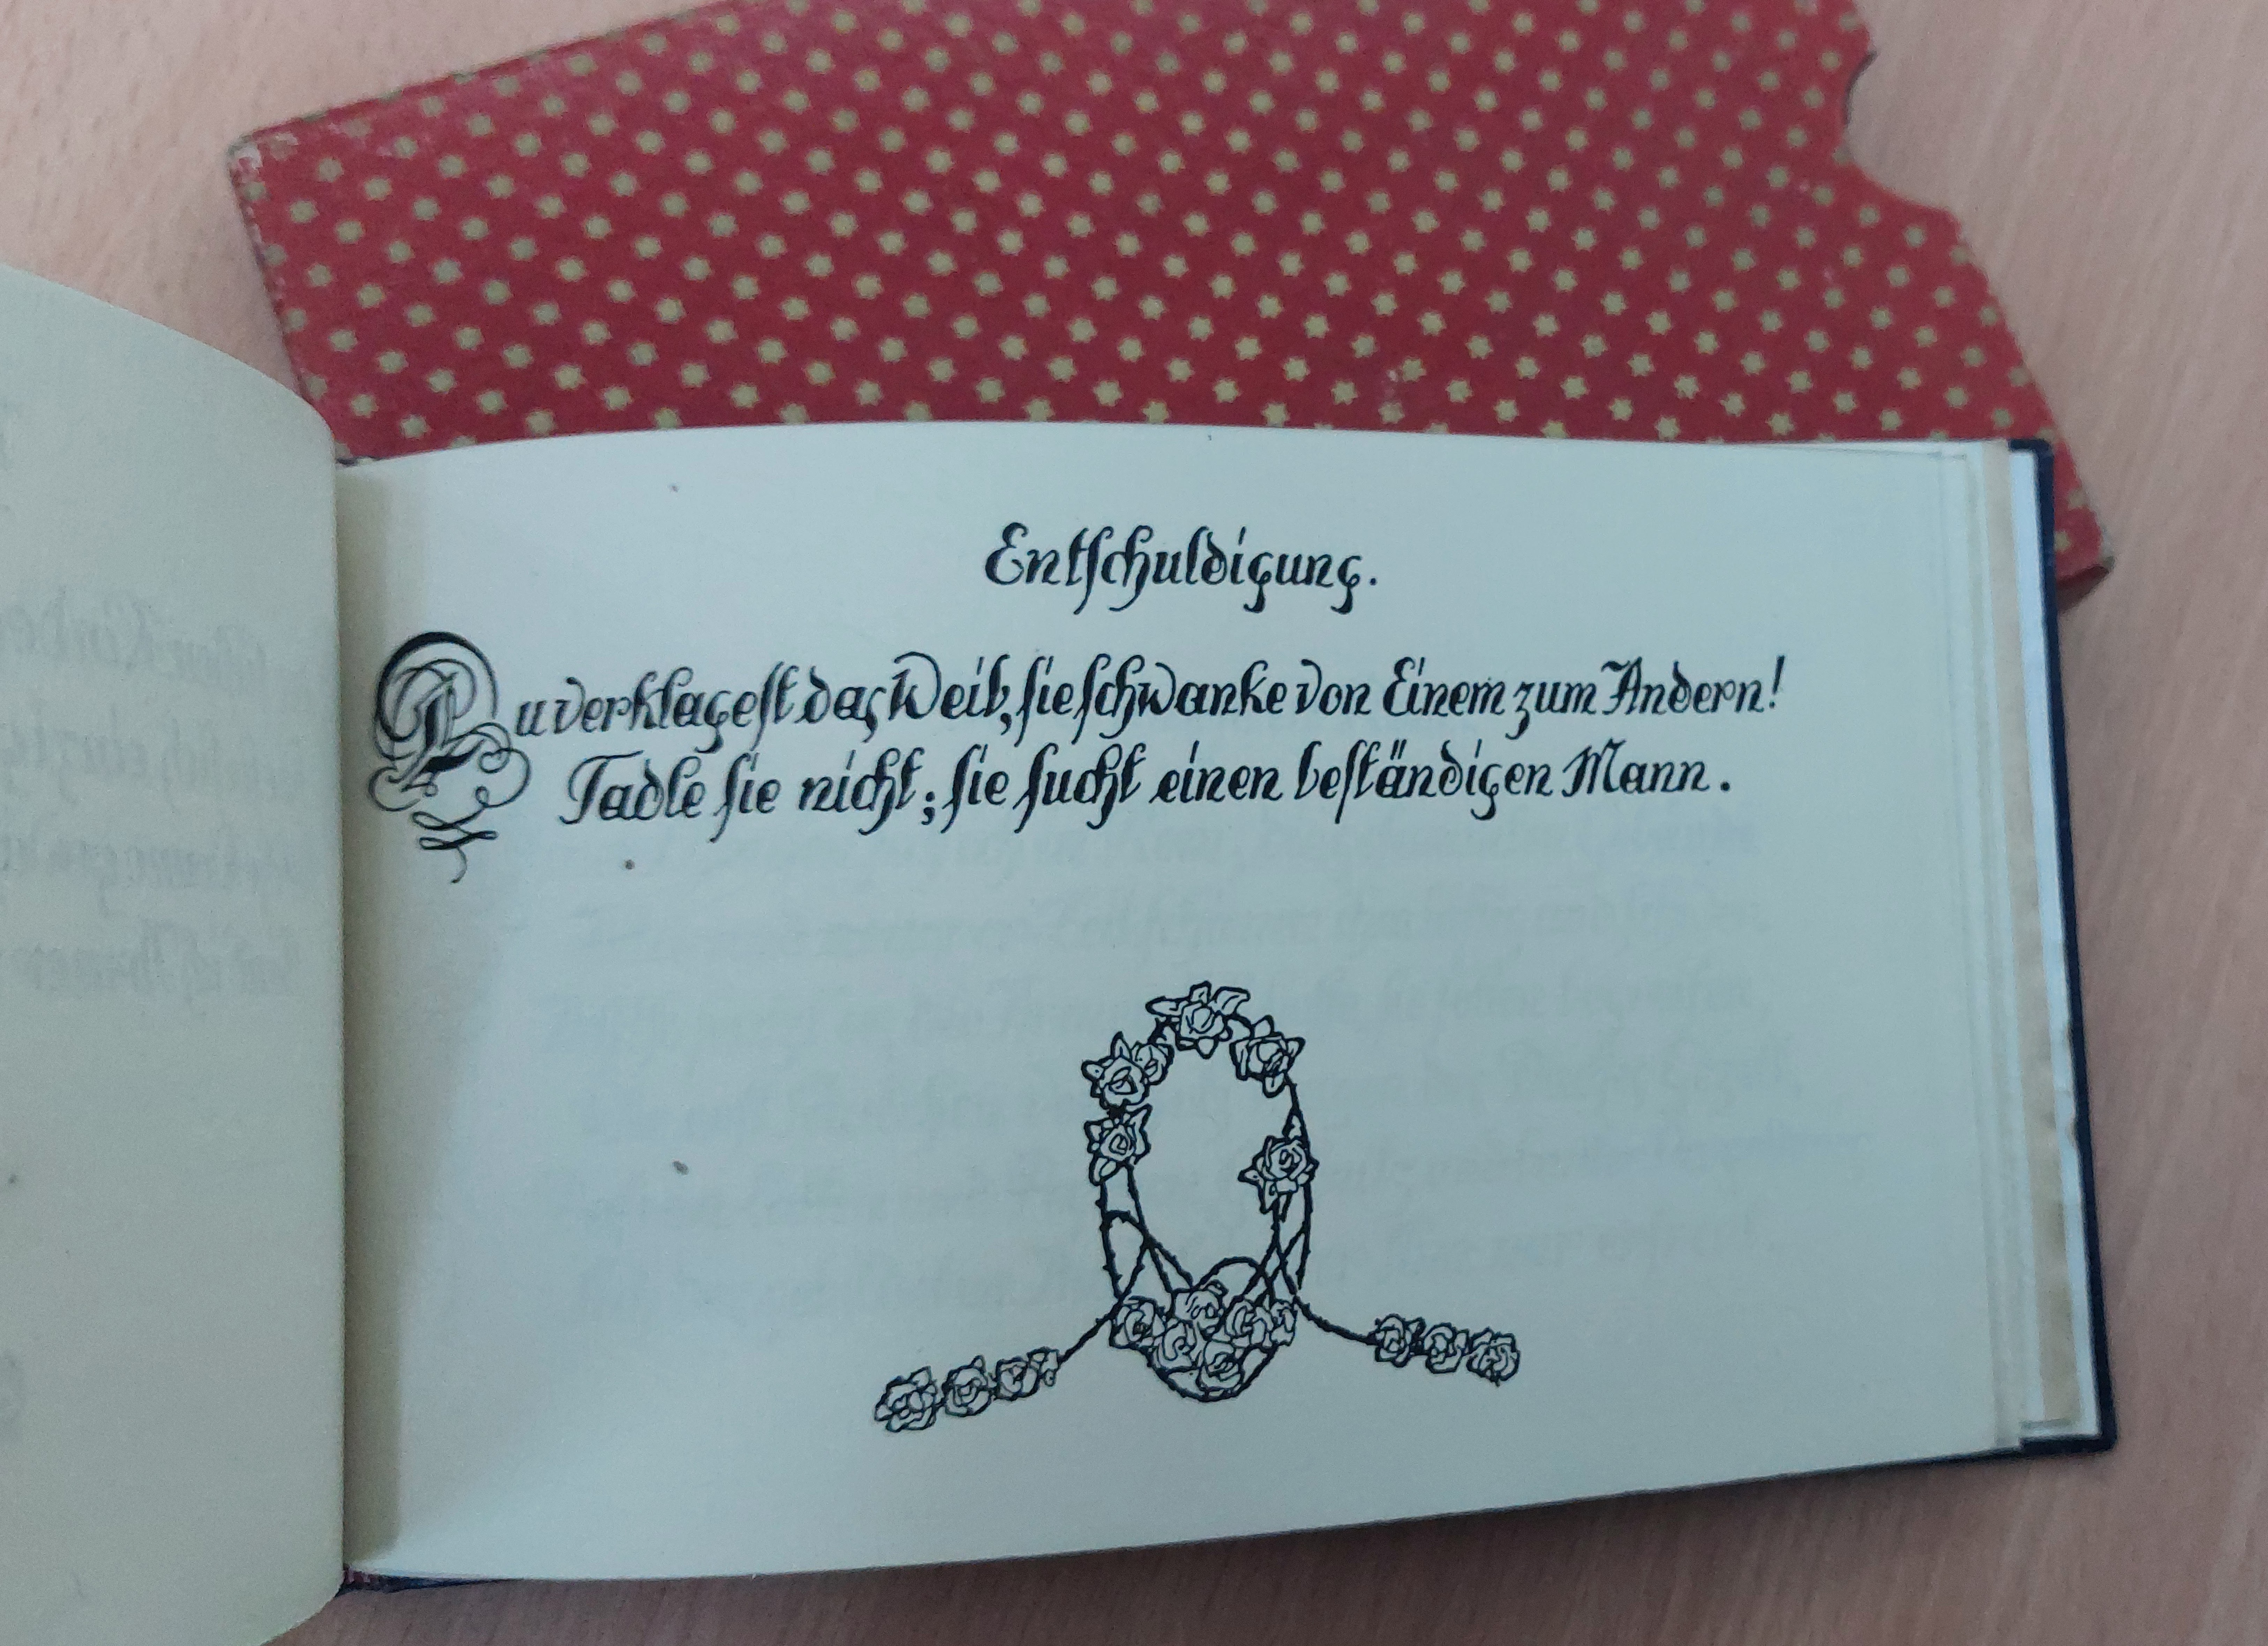 Entschuldigung.
Du verklagest das Weib, sie schwanke von Einem zum Andern!
Tadle sie nicht; sie sucht einen beständigen Mann.